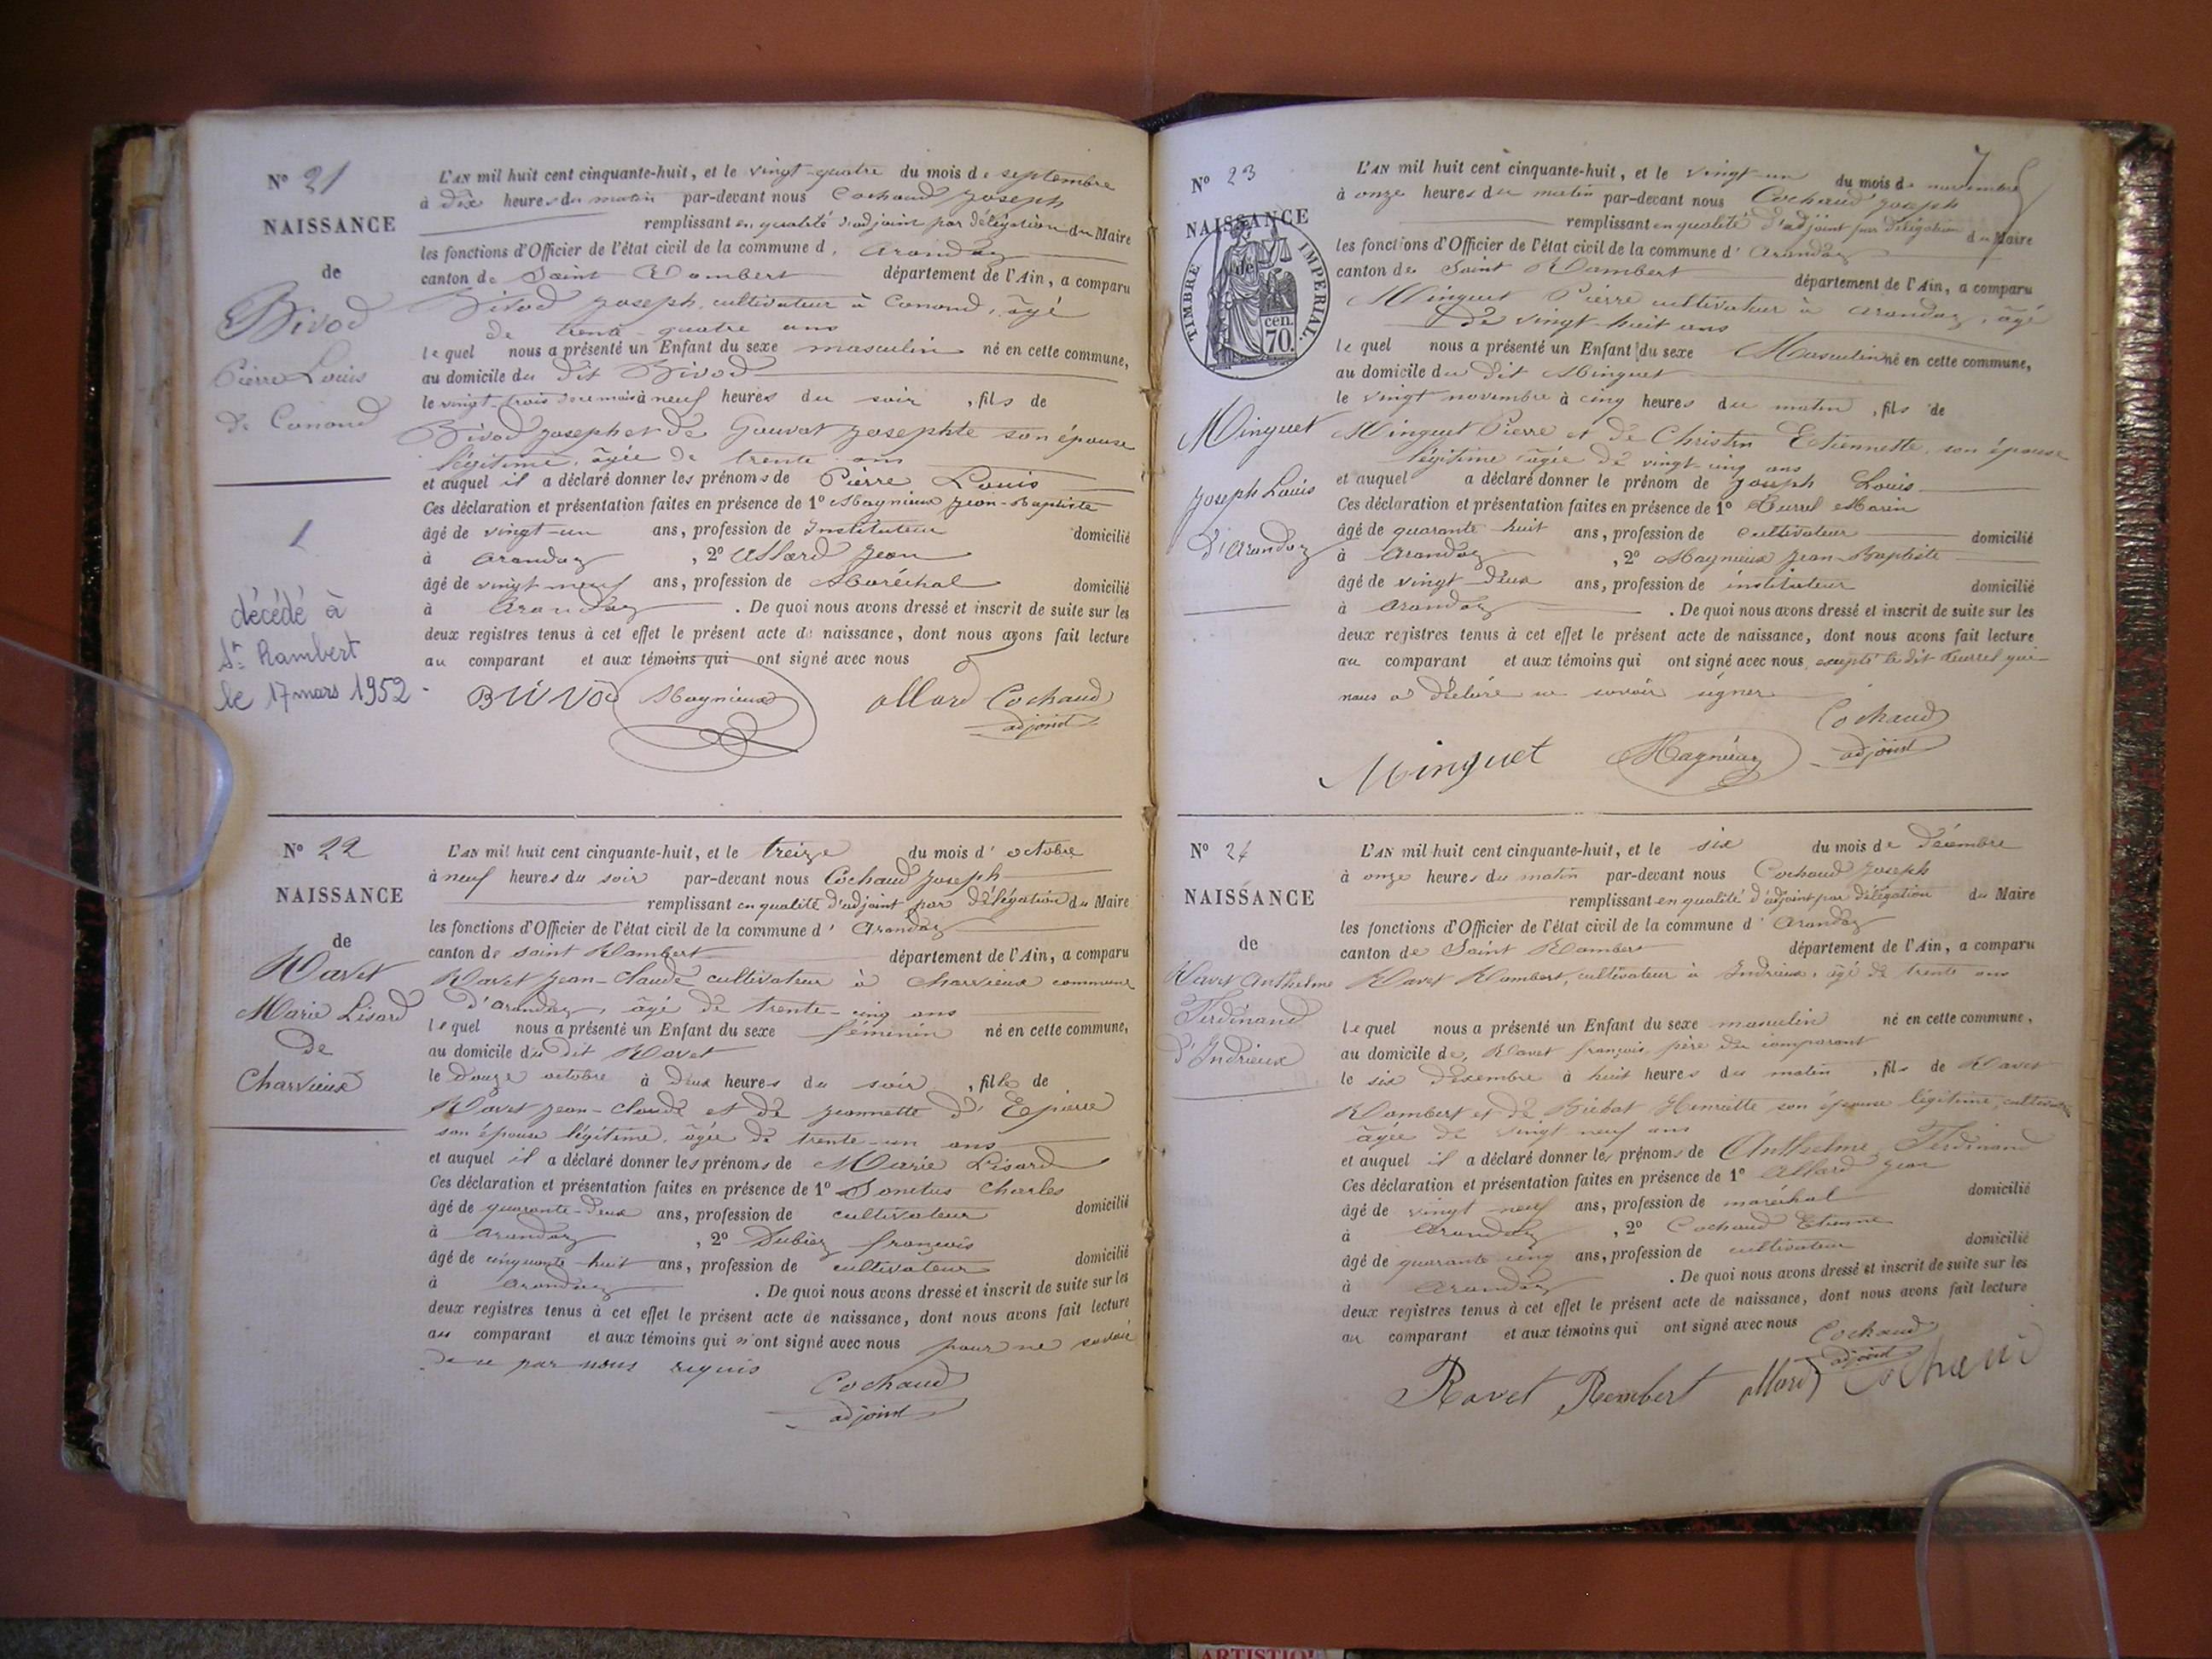 N° 21
NAISSANCE
de
Bivod
Pierre Louis
de Conand
1
décédé à
St Rambert
le 17 mars 1952
L'AN mil huit cent cinquante-huit, et le vingt-quatre du mois de septembre
à dix heures du matin par-devant nous Cochaud Joseph
remplissant en qualité d'adjoint par délégation du Maire
les fonctions d'Officier de l'état civil de la commune d'Arandaz
canton de Saint Rambert département de l'Ain, a comparu
Bivod Joseph, cultivateur à Conand, âgé
de trente-quatre ans
lequel nous a présenté un Enfant du sexe masculin né en cette commune,
au domicile du dit Bivod
le vingt-trois de ce mois à neuf heures du soir, fils de
Bivod Joseph et de Gouvat Josephte son épouse
légitime, âgée de trente ans
et auquel il a déclaré donner les prénoms de Pierre Louis
Ces déclaration et présentation faites en présence de 1° Magnieux Jean-Baptiste
âgé de vingt-un ans, profession de Instituteur domicilié
à Arandaz, 2° Allard Jean
âgé de vingt-neuf ans, profession de Maréchal domicilié
à Arandaz. De quoi nous avons dressé et inscrit de suite sur les
deux registres tenus à cet effet le présent acte de naissance, dont nous avons fait lecture
au comparant et aux témoins qui ont signé avec nous
Magnieux allard Cochaud
adjoint
N° 22
NAISSANCE
de
Ravet
Marie Lisard
de
Charvieux
L'AN mil huit cent cinquante-huit, et le treize du mois d'octobre
à neuf heures du soir par-devant nous Cochaud Joseph
remplissant en qualité d'adjoint par délégation du Maire
les fonctions d'Officier de l'état civil de la commune d'Arandaz
canton de saint Rambert département de l'Ain, a comparu
Ravet Jean-Claude cultivateur à Charvieux commune
d'arandaz, âgé de trente-cinq ans
lequel nous a présenté un Enfant du sexe féminin né en cette commune,
au domicile du dit Ravet
le douze octobre à deux heures du soir, fille de
Ravet Jean-Claude et de Jeannette d'Epierre
son épouse légitime, âgée de trente-un ans
et auquel il a déclaré donner les prénoms de Marie Lisard
Ces déclaration et présentation faites en présence de 1° Charles
âgé de quarante-deux ans, profession de cultivateur domicilié
à Arandaz, 2° Dubiez françois
âgé de cinquante-huit ans, profession de cultivateur domicilié
à Arandaz. De quoi nous avons dressé et inscrit de suite sur les
deux registres tenus à cet effet le présent acte de naissance, dont nous avons fait lecture
au comparant et aux témoins qui n'ont signé avec nous pour ne savoir
de ce par nous requis
Cochaud
adjoint
N° 23
NAISSANCE
de
TIMBRE IMPERIAL.
70. cen.
Minguet
Joseph Louis
d'Arandaz
L'AN mil huit cent cinquante-huit, et le vingt-un du mois de novembre
à onze heures du matin par-devant nous Cochaud Joseph
remplissant en qualité d'adjoint par délégation du Maire
les fonctions d'Officier de l'état civil de la commune d'Arandaz
canton de Saint Rambert département de l'Ain, a comparu
Minguet Pierre cultivateur à Arandaz, âgé
de vingt-huit ans
lequel nous a présenté un Enfant du sexe Masculin né en cette commune,
au domicile du dit Minguet
le vingt novembre à cinq heures du matin, fils de
Minguet Pierre et de Christin Etiennette, son épouse
légitime âgée de vingt-cinq ans
et auquel a déclaré donner le prénom de Joseph Louis
Ces déclaration et présentation faites en présence de 1° Marin
âgé de quarante-huit ans, profession de cultivateur domicilié
à Arandaz, 2° Magnieux Jean-Baptiste
âgé de vingt-deux ans, profession de instituteur domicilié
à Arandaz. De quoi nous avons dressé et inscrit de suite sur les
deux registres tenus à cet effet le présent acte de naissance, dont nous avons fait lecture
au comparant et aux témoins qui ont signé avec nous, excepté le dit qui
nous a déclaré ne savoir signer
Cochaud
adjoint
Minguet Magnieux
N° 24
NAISSANCE
de
Ravet Anthelme
Ferdinand
d'Indrieux
L'AN mil huit cent cinquante-huit, et le six du mois de décembre
à onze heures du matin par-devant nous Cochaud Joseph
remplissant en qualité d'adjoint par délégation du Maire
les fonctions d'Officier de l'état civil de la commune d'Arandaz
canton de Saint Rambert département de l'Ain, a comparu
Ravet Rambert, cultivateur à Indrieux, âgé de trente ans
lequel nous a présenté un Enfant du sexe masculin né en cette commune,
au domicile de, Ravet françois, père du comparant
le six décembre à huit heures du matin, fils de Ravet
Rambert et de Henriette son épouse légitime,
âgée de vingt-neuf ans
et auquel il a déclaré donner les prénoms de Anthelme Ferdinand
Ces déclaration et présentation faites en présence de 1° Allard Jean
âgé de vingt-neuf ans, profession de maréchal domicilié
à Arandaz, 2° Cochaud Etienne
âgé de quarante cinq ans, profession de cultivateur domicilié
à Arandaz. De quoi nous avons dressé et inscrit de suite sur les
deux registres tenus à cet effet le présent acte de naissance, dont nous avons fait lecture
au comparant et aux témoins qui ont signé avec nous Cochaud
adjoint
Ravet Rembert allard Cochaud